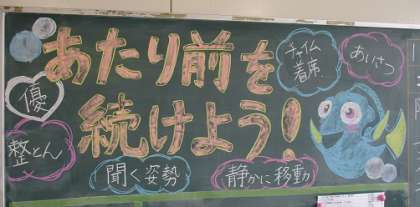 あたり前を
続けよう!
チャイム
着席
あいさつ
優
整とん
聞く姿勢
静かに移動